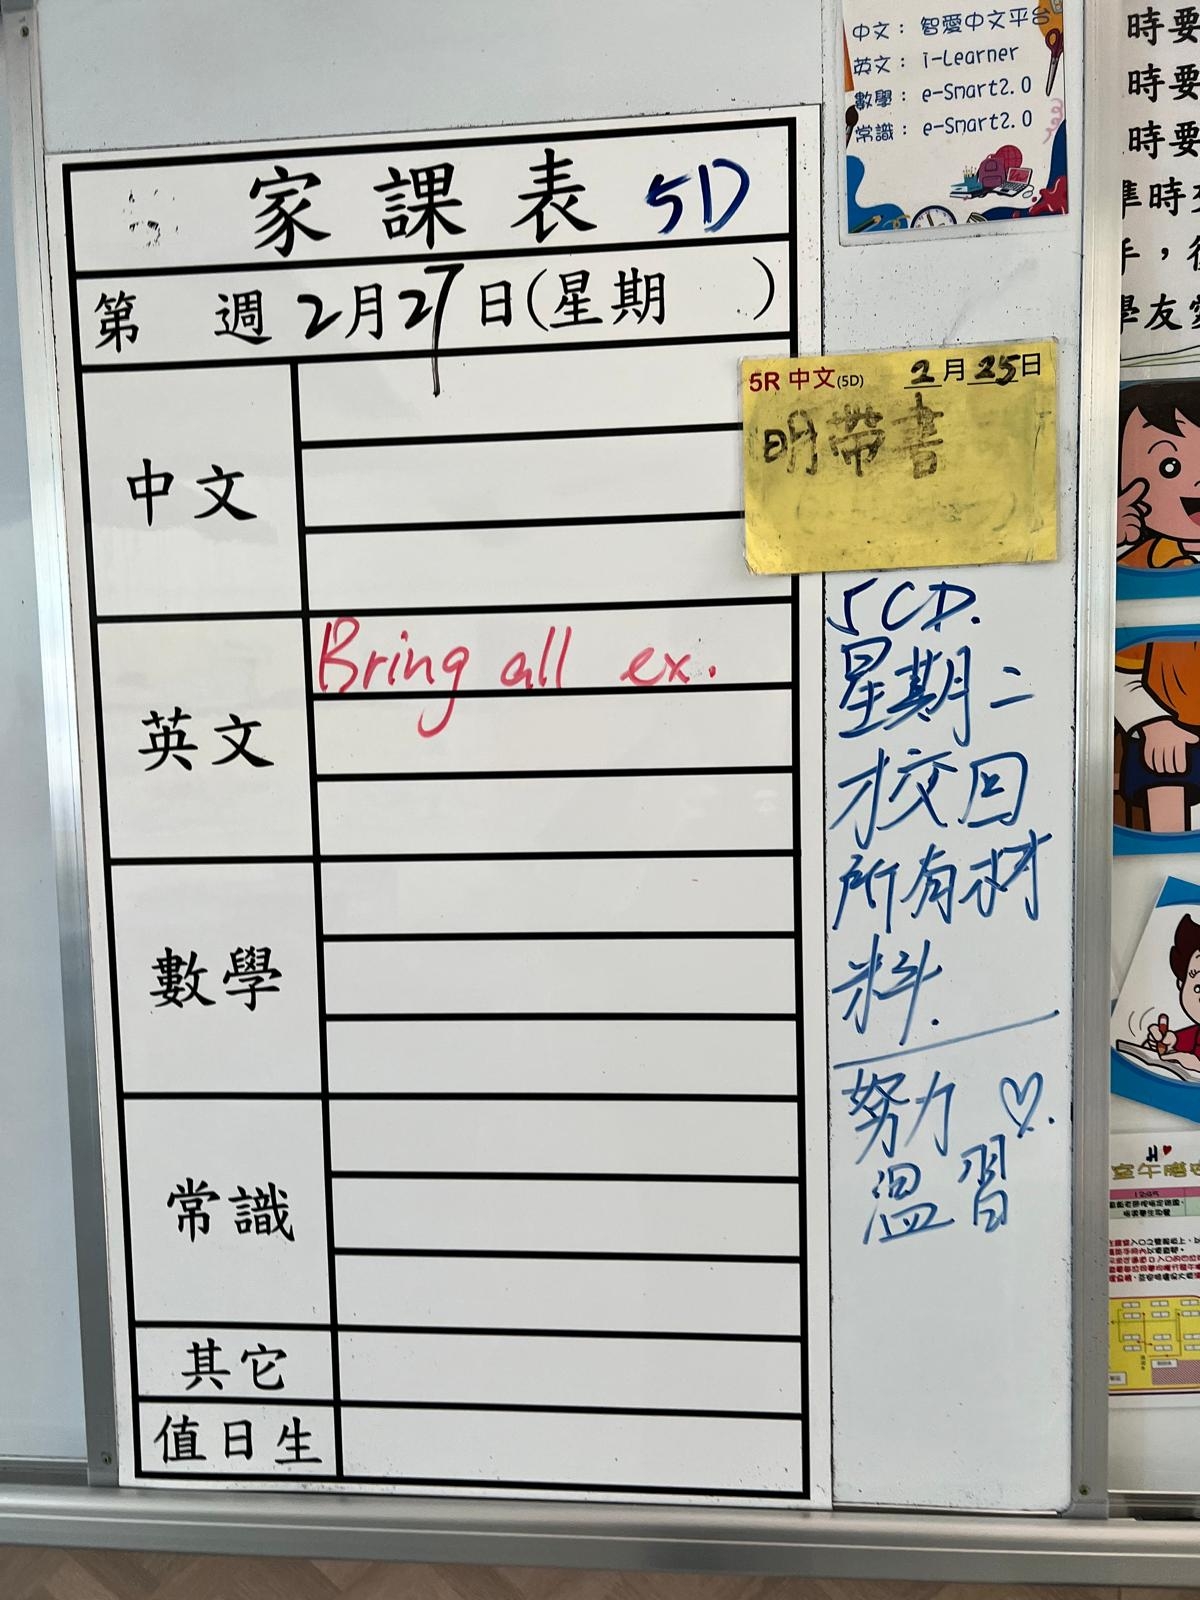 中文： 智愛中文平台
英文： i-Learner
數學： e-Smart2.0
常識： e-Smart2.0
家課表 5D
第 週 2月27日(星期 )
中文
英文
Bring all ex.
數學
常識
其它
值日生
5R 中文(5D) 2月25日
明帶書
5CD.
星期二
才交回
所有材
料.
努力 ♡.
溫習
時要
時要
時要
準時
手，
學友
H♥
室午膳
12:45